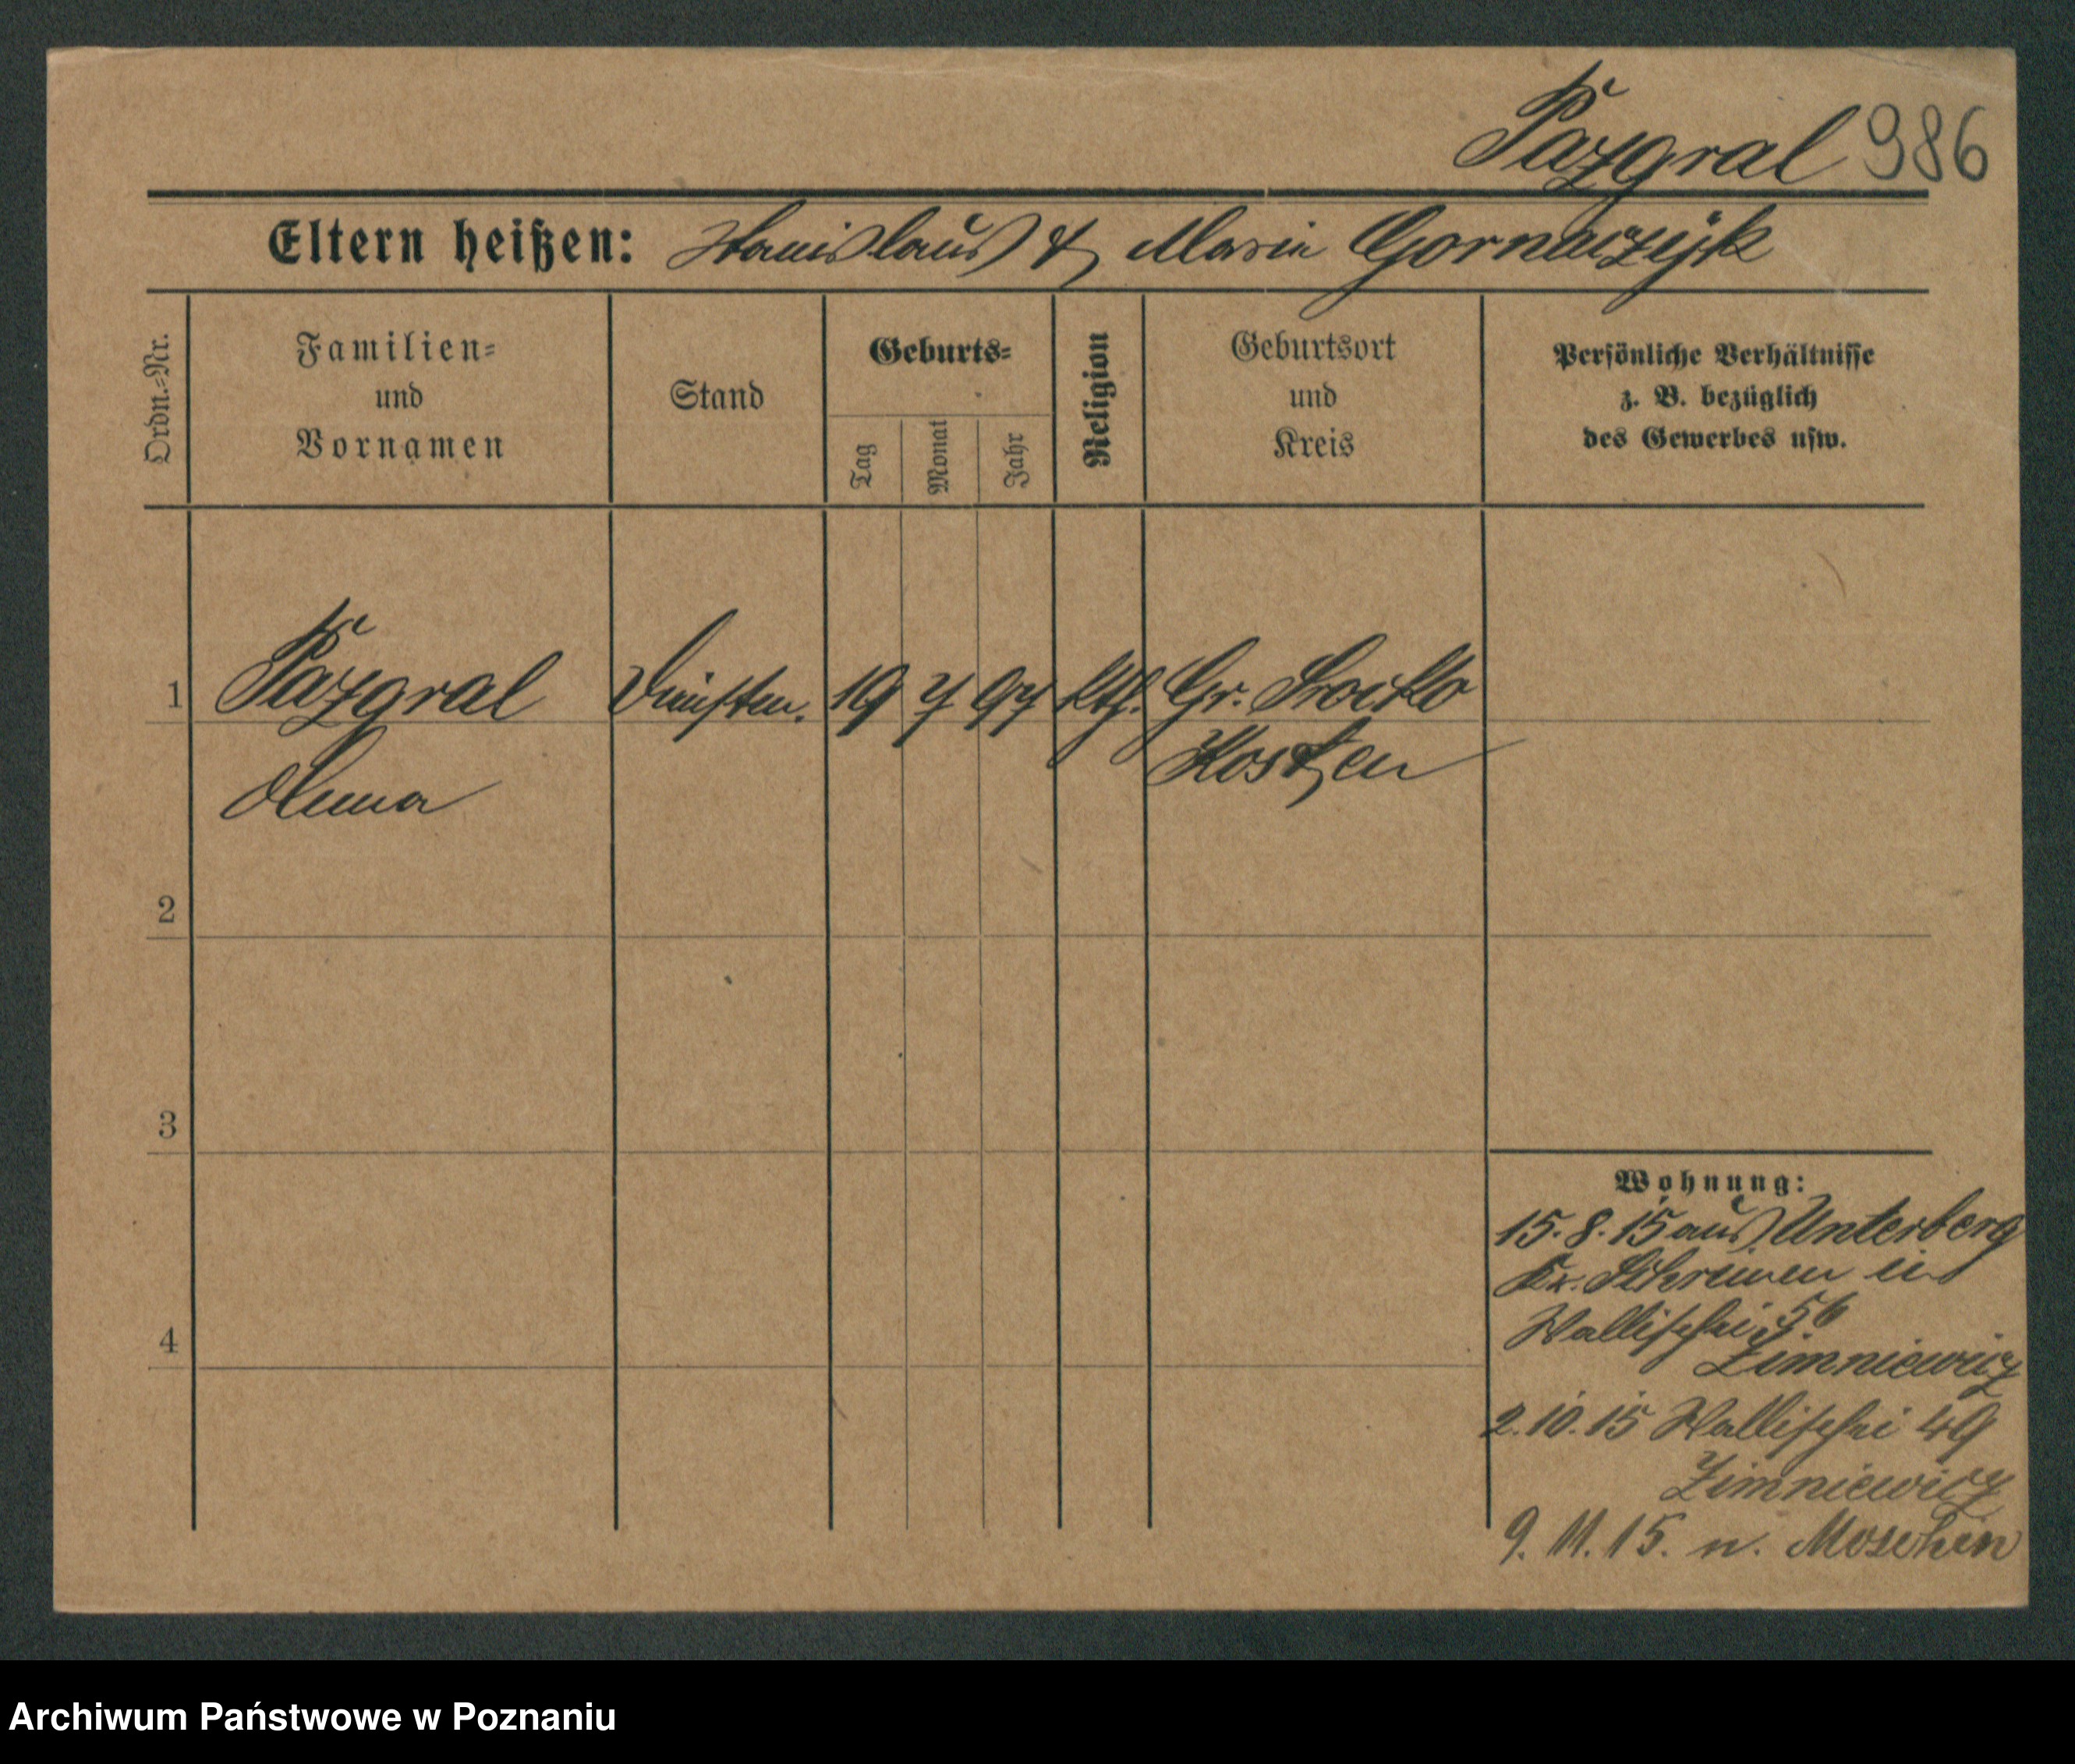 Pazgral 986
Eltern heißen: Stanislaus & Maria Gornaczyk
Ordn.=Nr.
Familien=
und
Vornamen
Stand
Geburts=
Tag
Monat
Jahr
Religion
Geburtsort
und
Kreis
Persönliche Verhältnisse
z. B. bezüglich
des Gewerbes usw.
1 Pazgral Dienstm. 19 7 97 kth. Gr. Srocko
Anna Kosten
2
3
4
Wohnung:
15.8.15 aus Unterberg
Kr. Schrimm in
Wallischei 56
Zimniewicz
2.10.15 Wallischei 49
Zimniewicz
9.11.15. n. Moschin
Archiwum Państwowe w Poznaniu